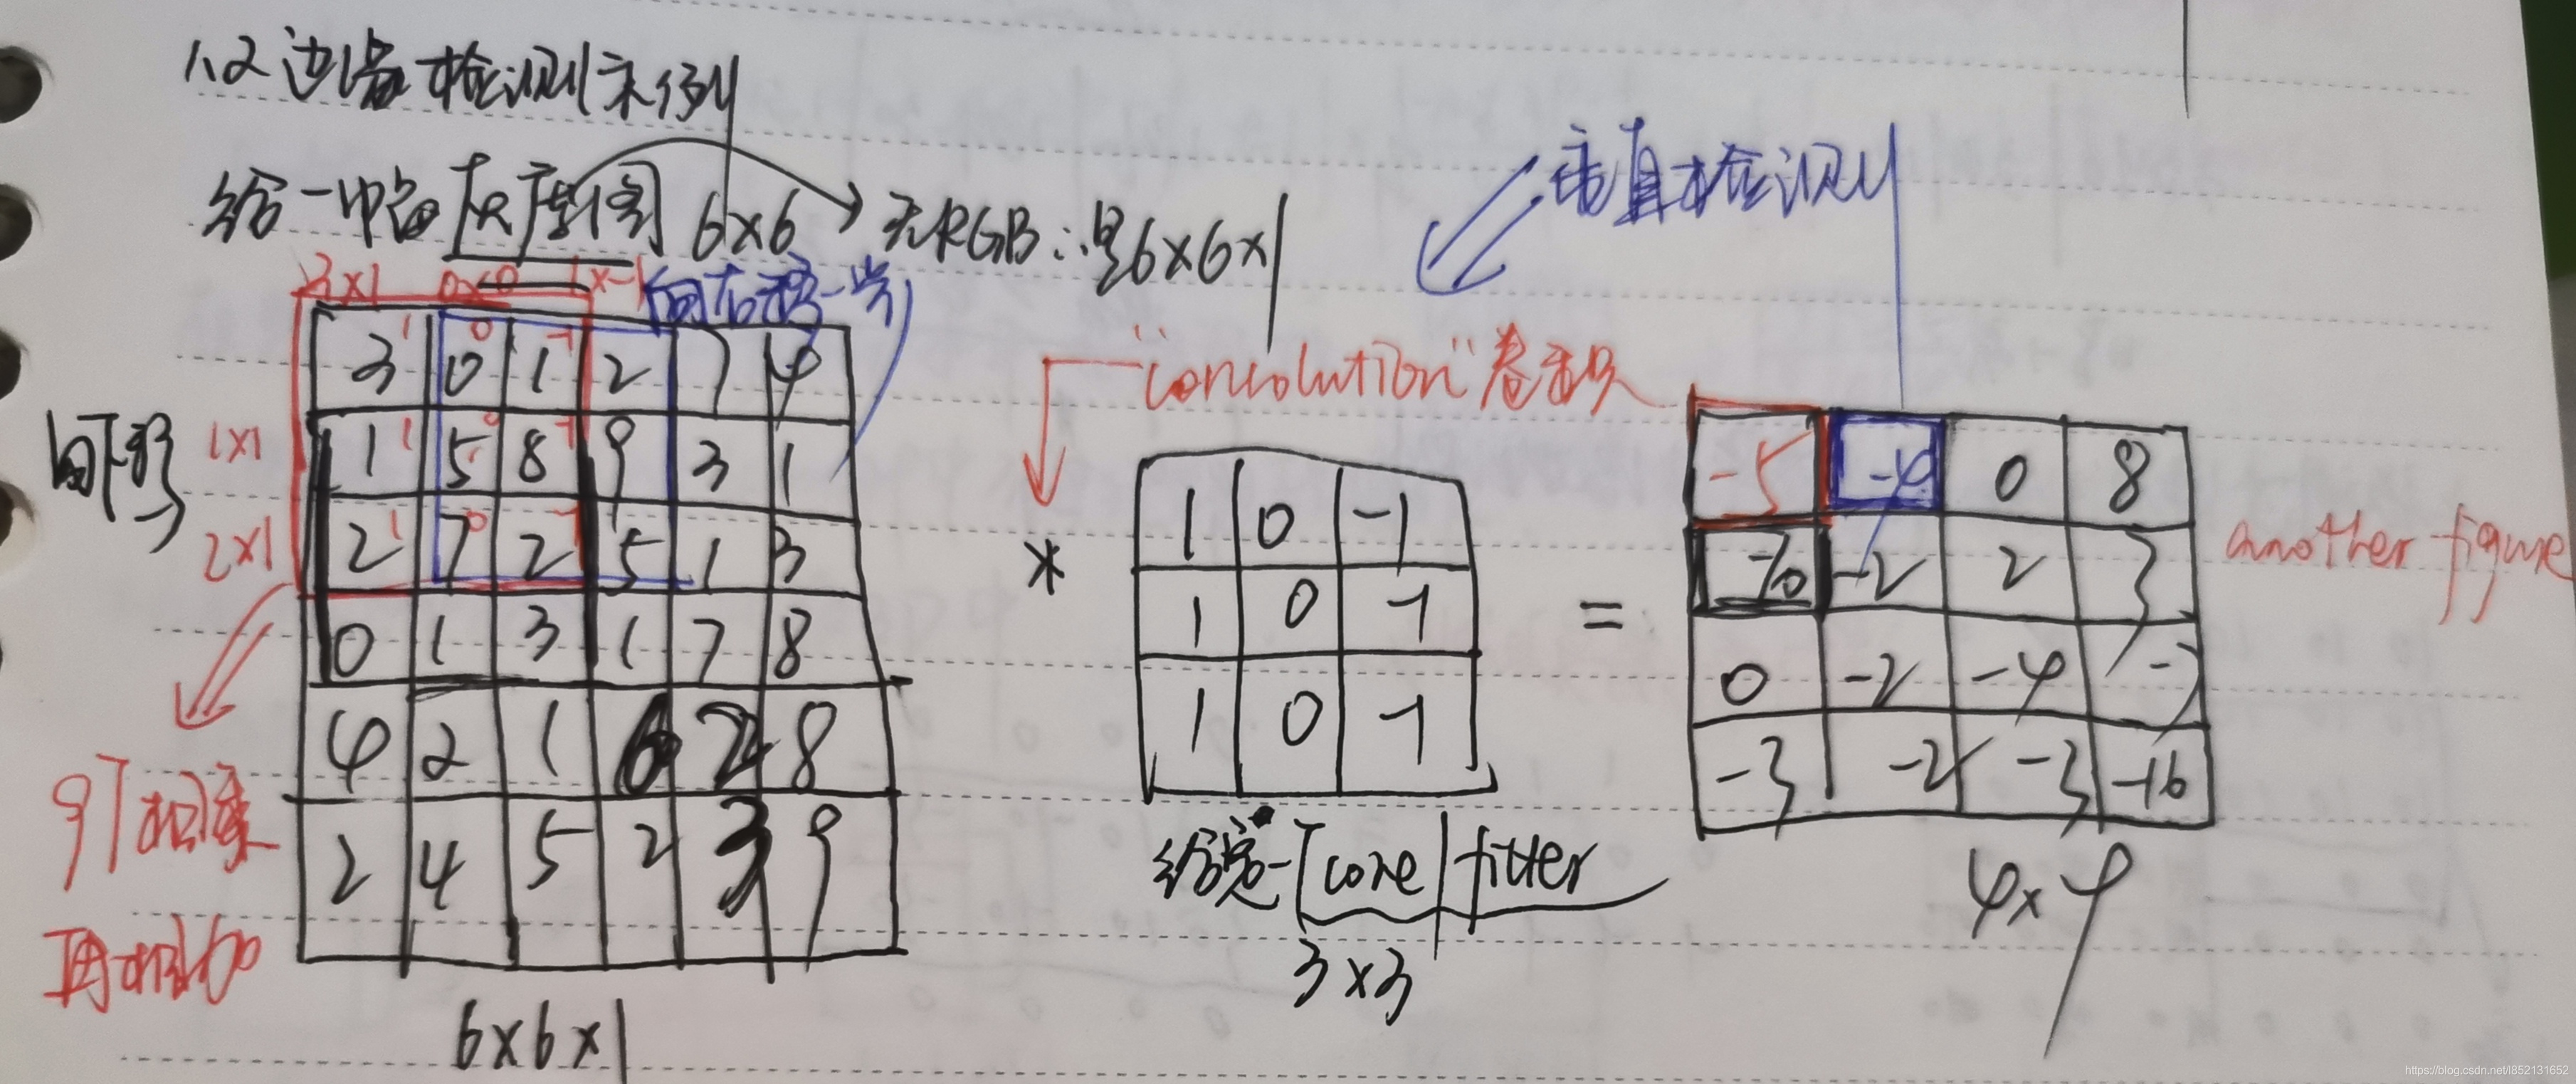 1.2 边缘检测示例
给一幅 灰度图 6×6 → 无RGB ∴是6×6×1
垂直检测
3×1 0×0 1×-1 向右移一步
"convolution" 卷积
3 1 0 0 1 -1 2 7 4
向下移
1×1 1 1 5 0 8 -1 9 3 1
2×1 2 1 7 0 2 -1 5 1 3
0 1 3 1 7 8
4 2 1 6 2 8
2 4 5 2 3 9
6×6×1
9个相乘
再相加
*
1 0 -1
1 0 -1
1 0 -1
core filter
3×3
=
-5 -4 0 8
-10 -2 2 3
0 -2 -4 -7
-3 -2 -3 -16
4×4
another figure
https://blog.csdn.net/l852131652